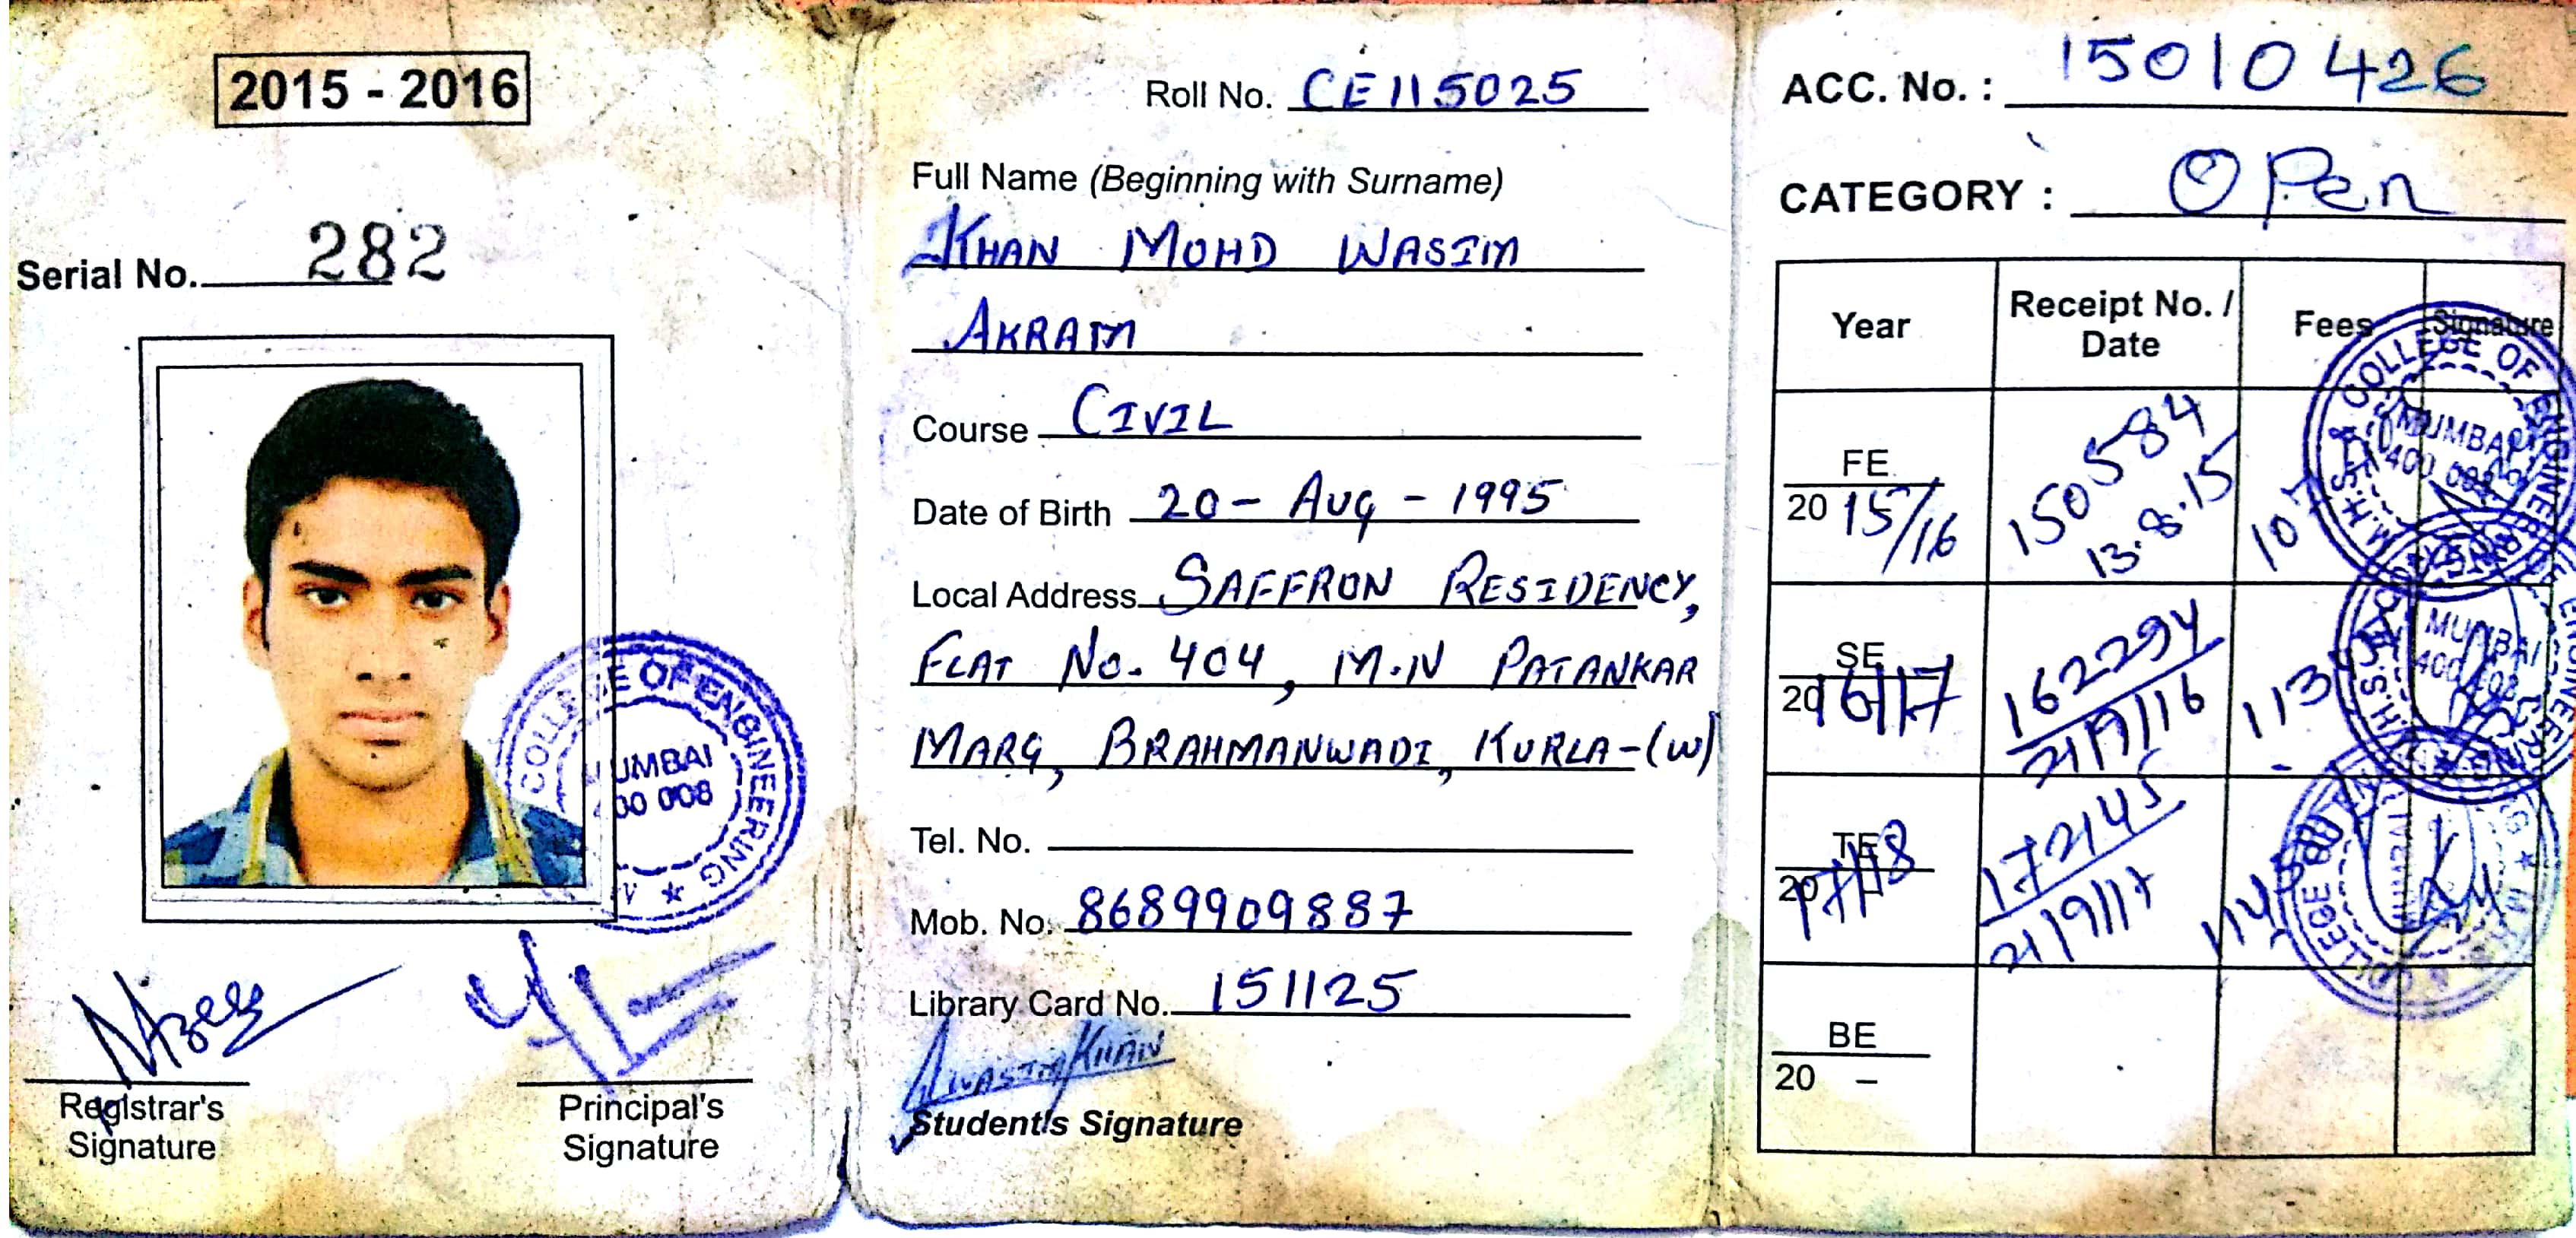 2015 - 2016
Serial No. 282
COLLEGE OF ENGINEERING
MUMBAI
400 008
Registrar's
Signature
Principal's
Signature
Roll No. CE115025
Full Name (Beginning with Surname)
KHAN MOHD WASIM
AKRAM
Course CIVIL
Date of Birth 20 - Aug - 1995
Local Address SAFFRON RESIDENCY,
FLAT No. 404, M.N PATANKAR
MARG, BRAHMANWADI, KURLA-(W)
Tel. No.
Mob. No. 8689909887
Library Card No. 151125
Student's Signature
ACC. No. : 15010426
CATEGORY : OPen
Year Receipt No. / Date Fees Signature
FE
20 15/16 150584
13.8.15
COLLEGE OF ENGINEERING
MUMBAI
400 008
SE
20 16/17 162294
21/9/16 113
MUMBAI
400 008
TE
20 17/18 172145
21/9/17
COLLEGE OF
BE
20 –